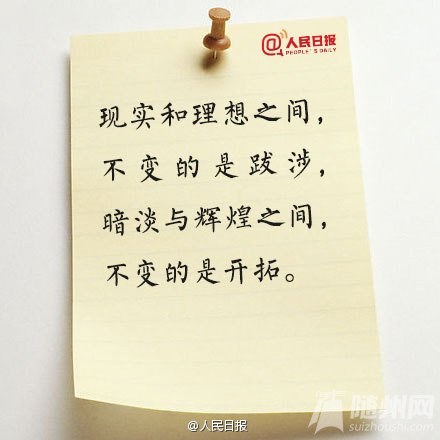 @人民日报
PEOPLE'S DAILY
现实和理想之间，
不变的是跋涉，
暗淡与辉煌之间，
不变的是开拓。
@人民日报
随州网
suizhoushi.com